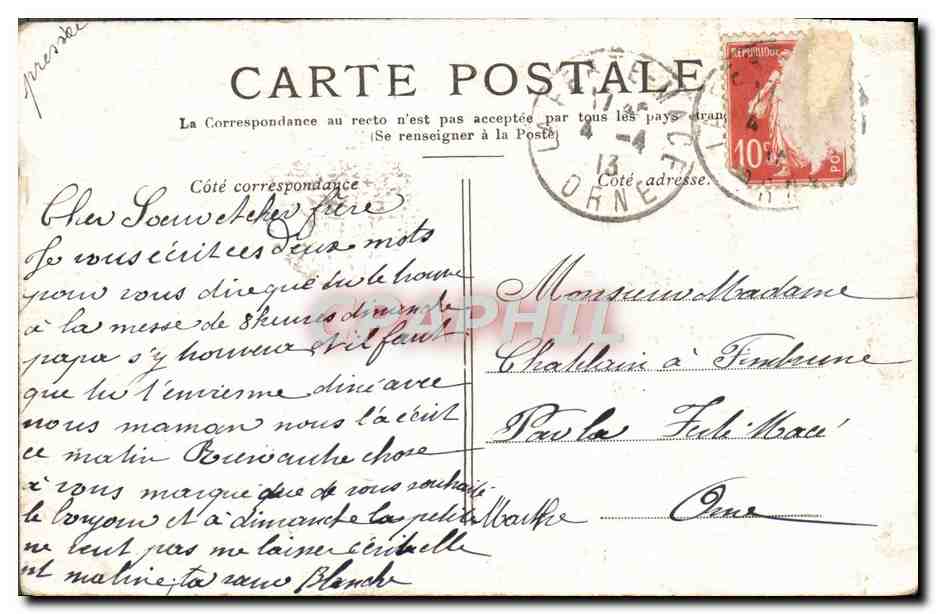 pressée
CARTE POSTALE
La Correspondance au recto n'est pas acceptée par tous les pays étrang
(Se renseigner à la Poste)
Côté correspondance
Côté adresse.
REPUBLIQUE
10c
PO
LA FERTE MACE
17
4 -4
13
ORNE
CPAPHIL
Cher Soeur et cher frère
Je vous écrit ces deux mots
pour vous dire que tu le trouve
à la messe de 8 heures dimanche
papa s'y trouvera et il faut
que tu t'envienne diné avec
nous maman nous l'a écrit
ce matin Rien autre chose
à vous marqué que de vous souhaité
le bonjour et à dimanche la petite Marthe
ne veut pas me laisser écrit elle
est maline ta sœur Blanche
Monsieur Madame
Chatelain à
Par la Ferté Macé
Orne